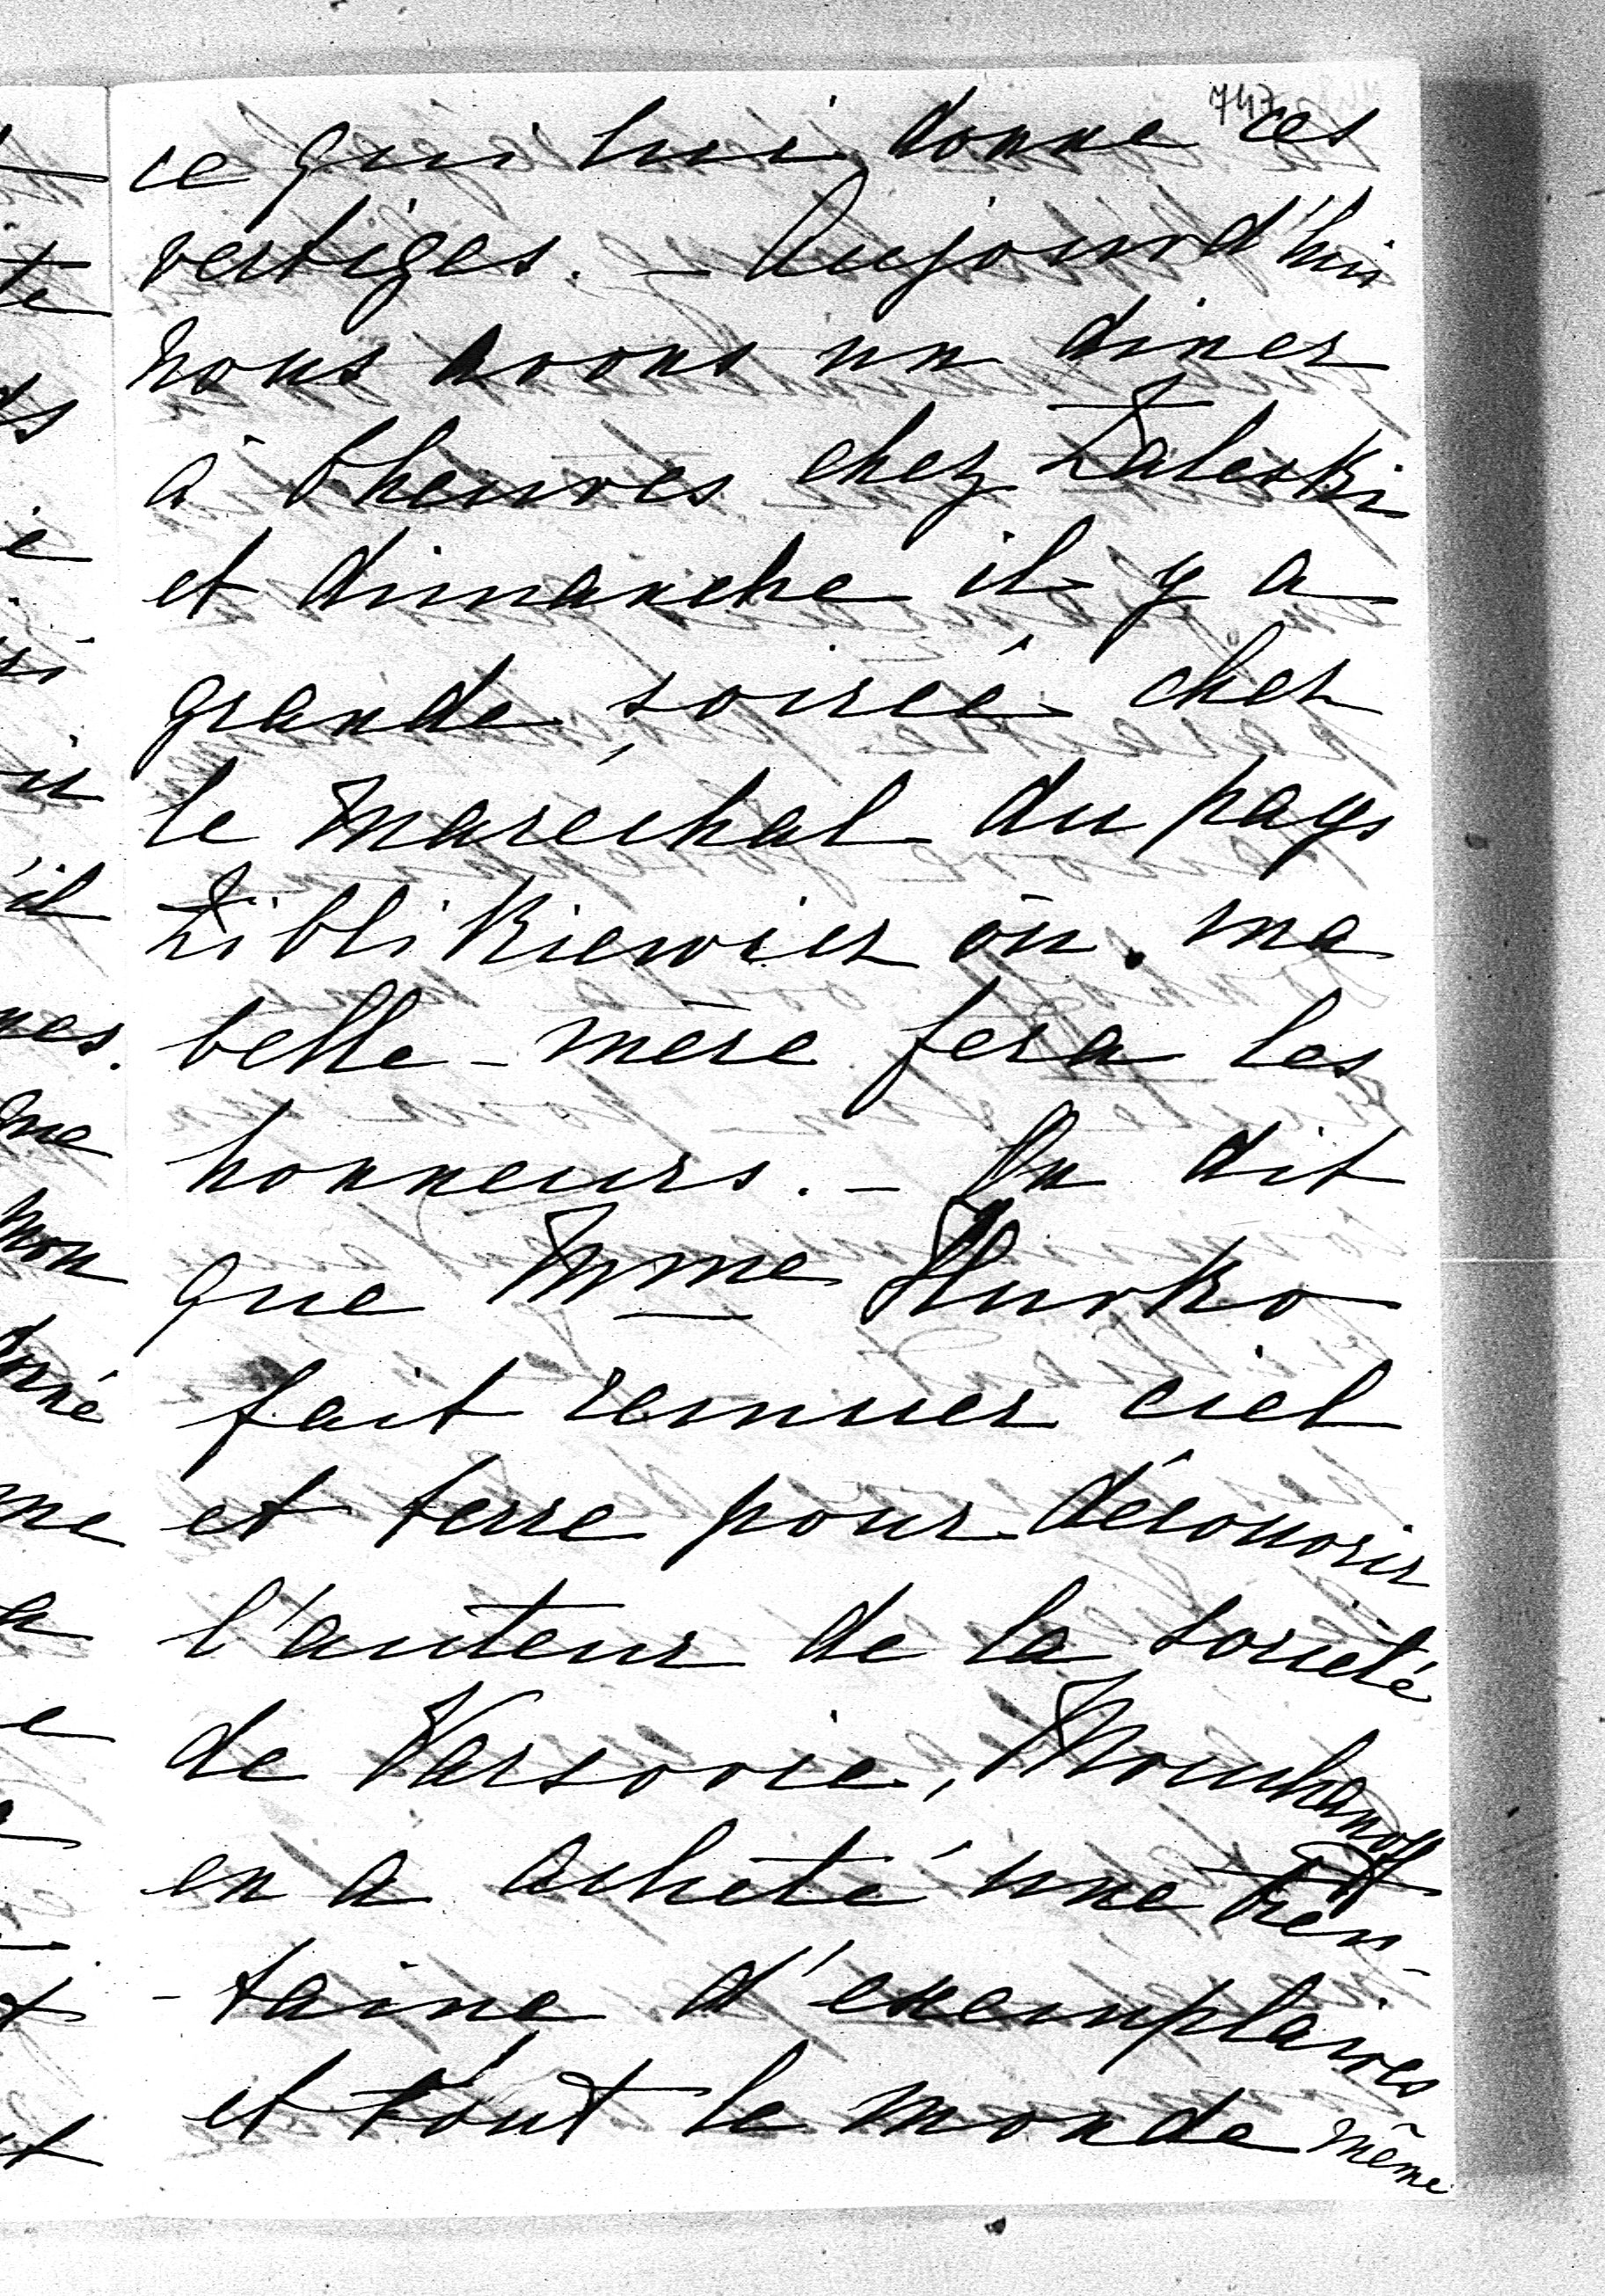 747
ce qui lui donne ces
vertiges. – Aujourd'hui
nous avons un diner
à 6 heures chez Zaleski
et dimanche il y a
grande soirée chez
le maréchal du pays
Zibli Kiewicz où ma
belle-mère fera les
honneurs. – On dit
que Mme Hurko
fait remuer ciel
et terre pour découvrir
l'auteur de la société
de Varsovie, Mouchanoff
en a acheté une tren-
-taine d'exemplaires
et tout le monde même